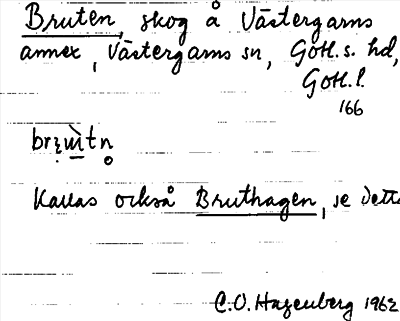 Bruten, skog å Västergarns
annex, Västergarns sn, Gotl. s. hd,
Gotl. l.
166
Kallas också Bruthagen, se detta
C.O. Hagenberg 1962